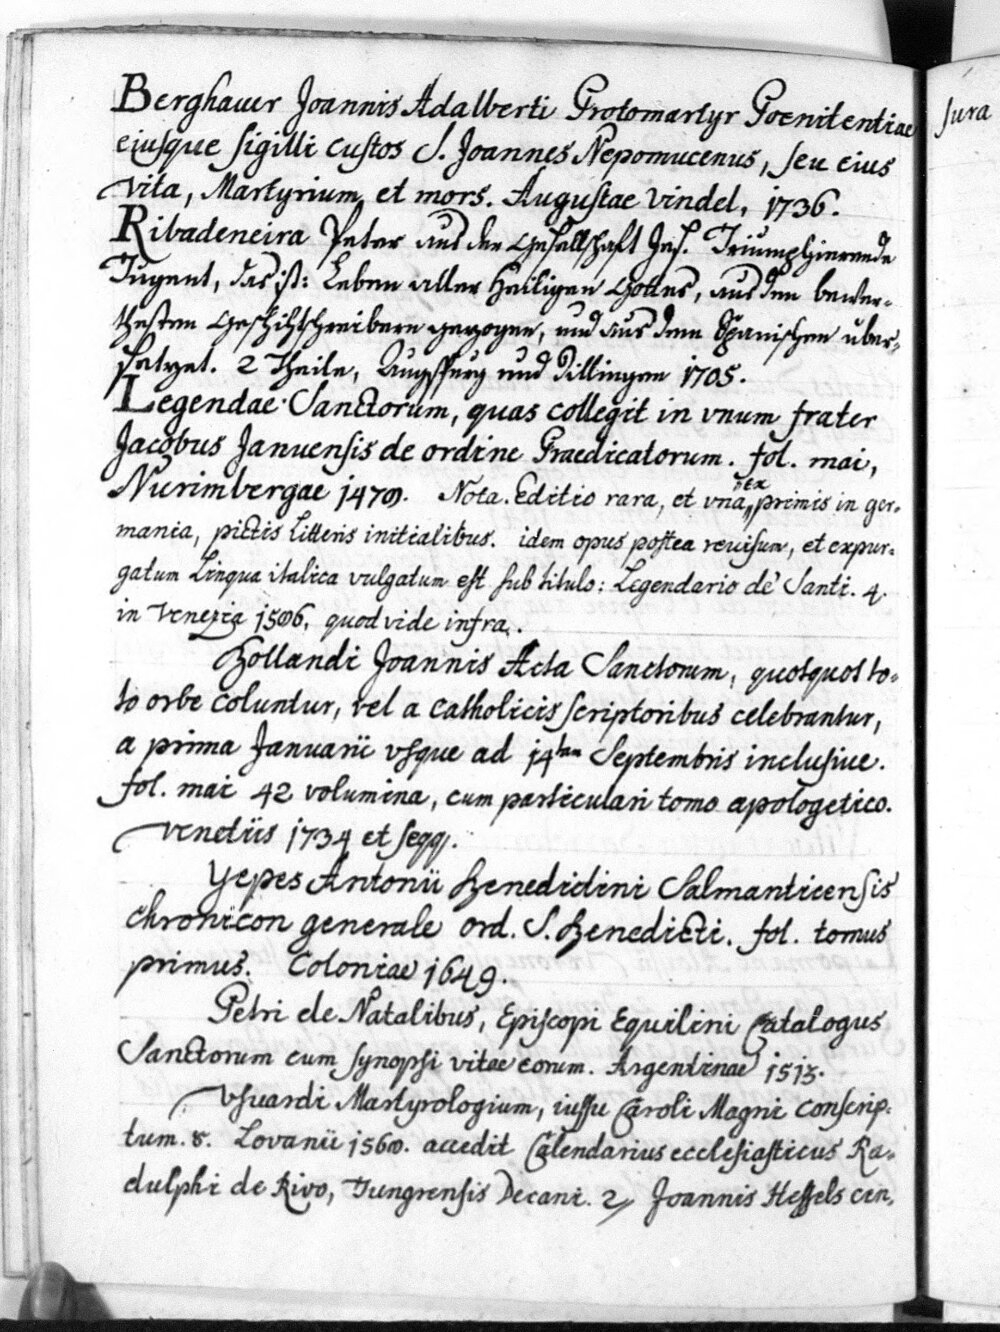 Berghauer Joannis Adalberti Protomartyr Poenitentiae
eiusque sigilli custos S. Joannes Nepomucenus, seu eius
vita, Martyrium et mors. Augustae Vindel. 1736.
Ribadeneira Peter aus der Gesellschaft Jes. Triumphierende
Tugent, das ist: Leben aller Heiligen Gottes, aus den bewer-
thesten Geschichtschreibern gezogen, und aus dem Spanischen über-
setzet. 2 Theile, Augspurg und Dillingen 1705.
Legendae Sanctorum, quas collegit in vnum frater
Jacobus Januensis de ordine Praedicatorum. fol. mai,
Nurimbergae 1470. Nota. Editio rara, et vna ex primis in ger-
mania, pictis litteris initialibus. idem opus postea reuisum, et expur-
gatum Lingua italica vulgatum est sub titulo: Legendario de Santi. 4.
in Venezia 1506, quod vide infra.
Bollandi Joannis Acta Sanctorum, quotquot to-
to orbe coluntur, vel a catholicis scriptoribus celebrantur,
a prima Januarii vsque ad 14tam Septembris inclusiue.
fol. mai 42 volumina, cum particulari tomo apologetico.
Venetiis 1734 et seqq.
Yepes Antonii Benedictini Salmanticensis
Chronicon generale ord. S. Benedicti. fol. tomus
primus. Coloniae 1649.
Petri de Natalibus, Episcopi Equilini Catalogus
Sanctorum cum synopsi vitae eorum. Argentinae 1513.
Vsuardi Martyrologium, iussu Caroli Magni conscrip-
tum. 8. Lovanii 1560. accedit Calendarius ecclesiasticus Ra-
dulphi de Rivo, Tungrensis Decani. 2, Joannis Hessels cen,
Jura